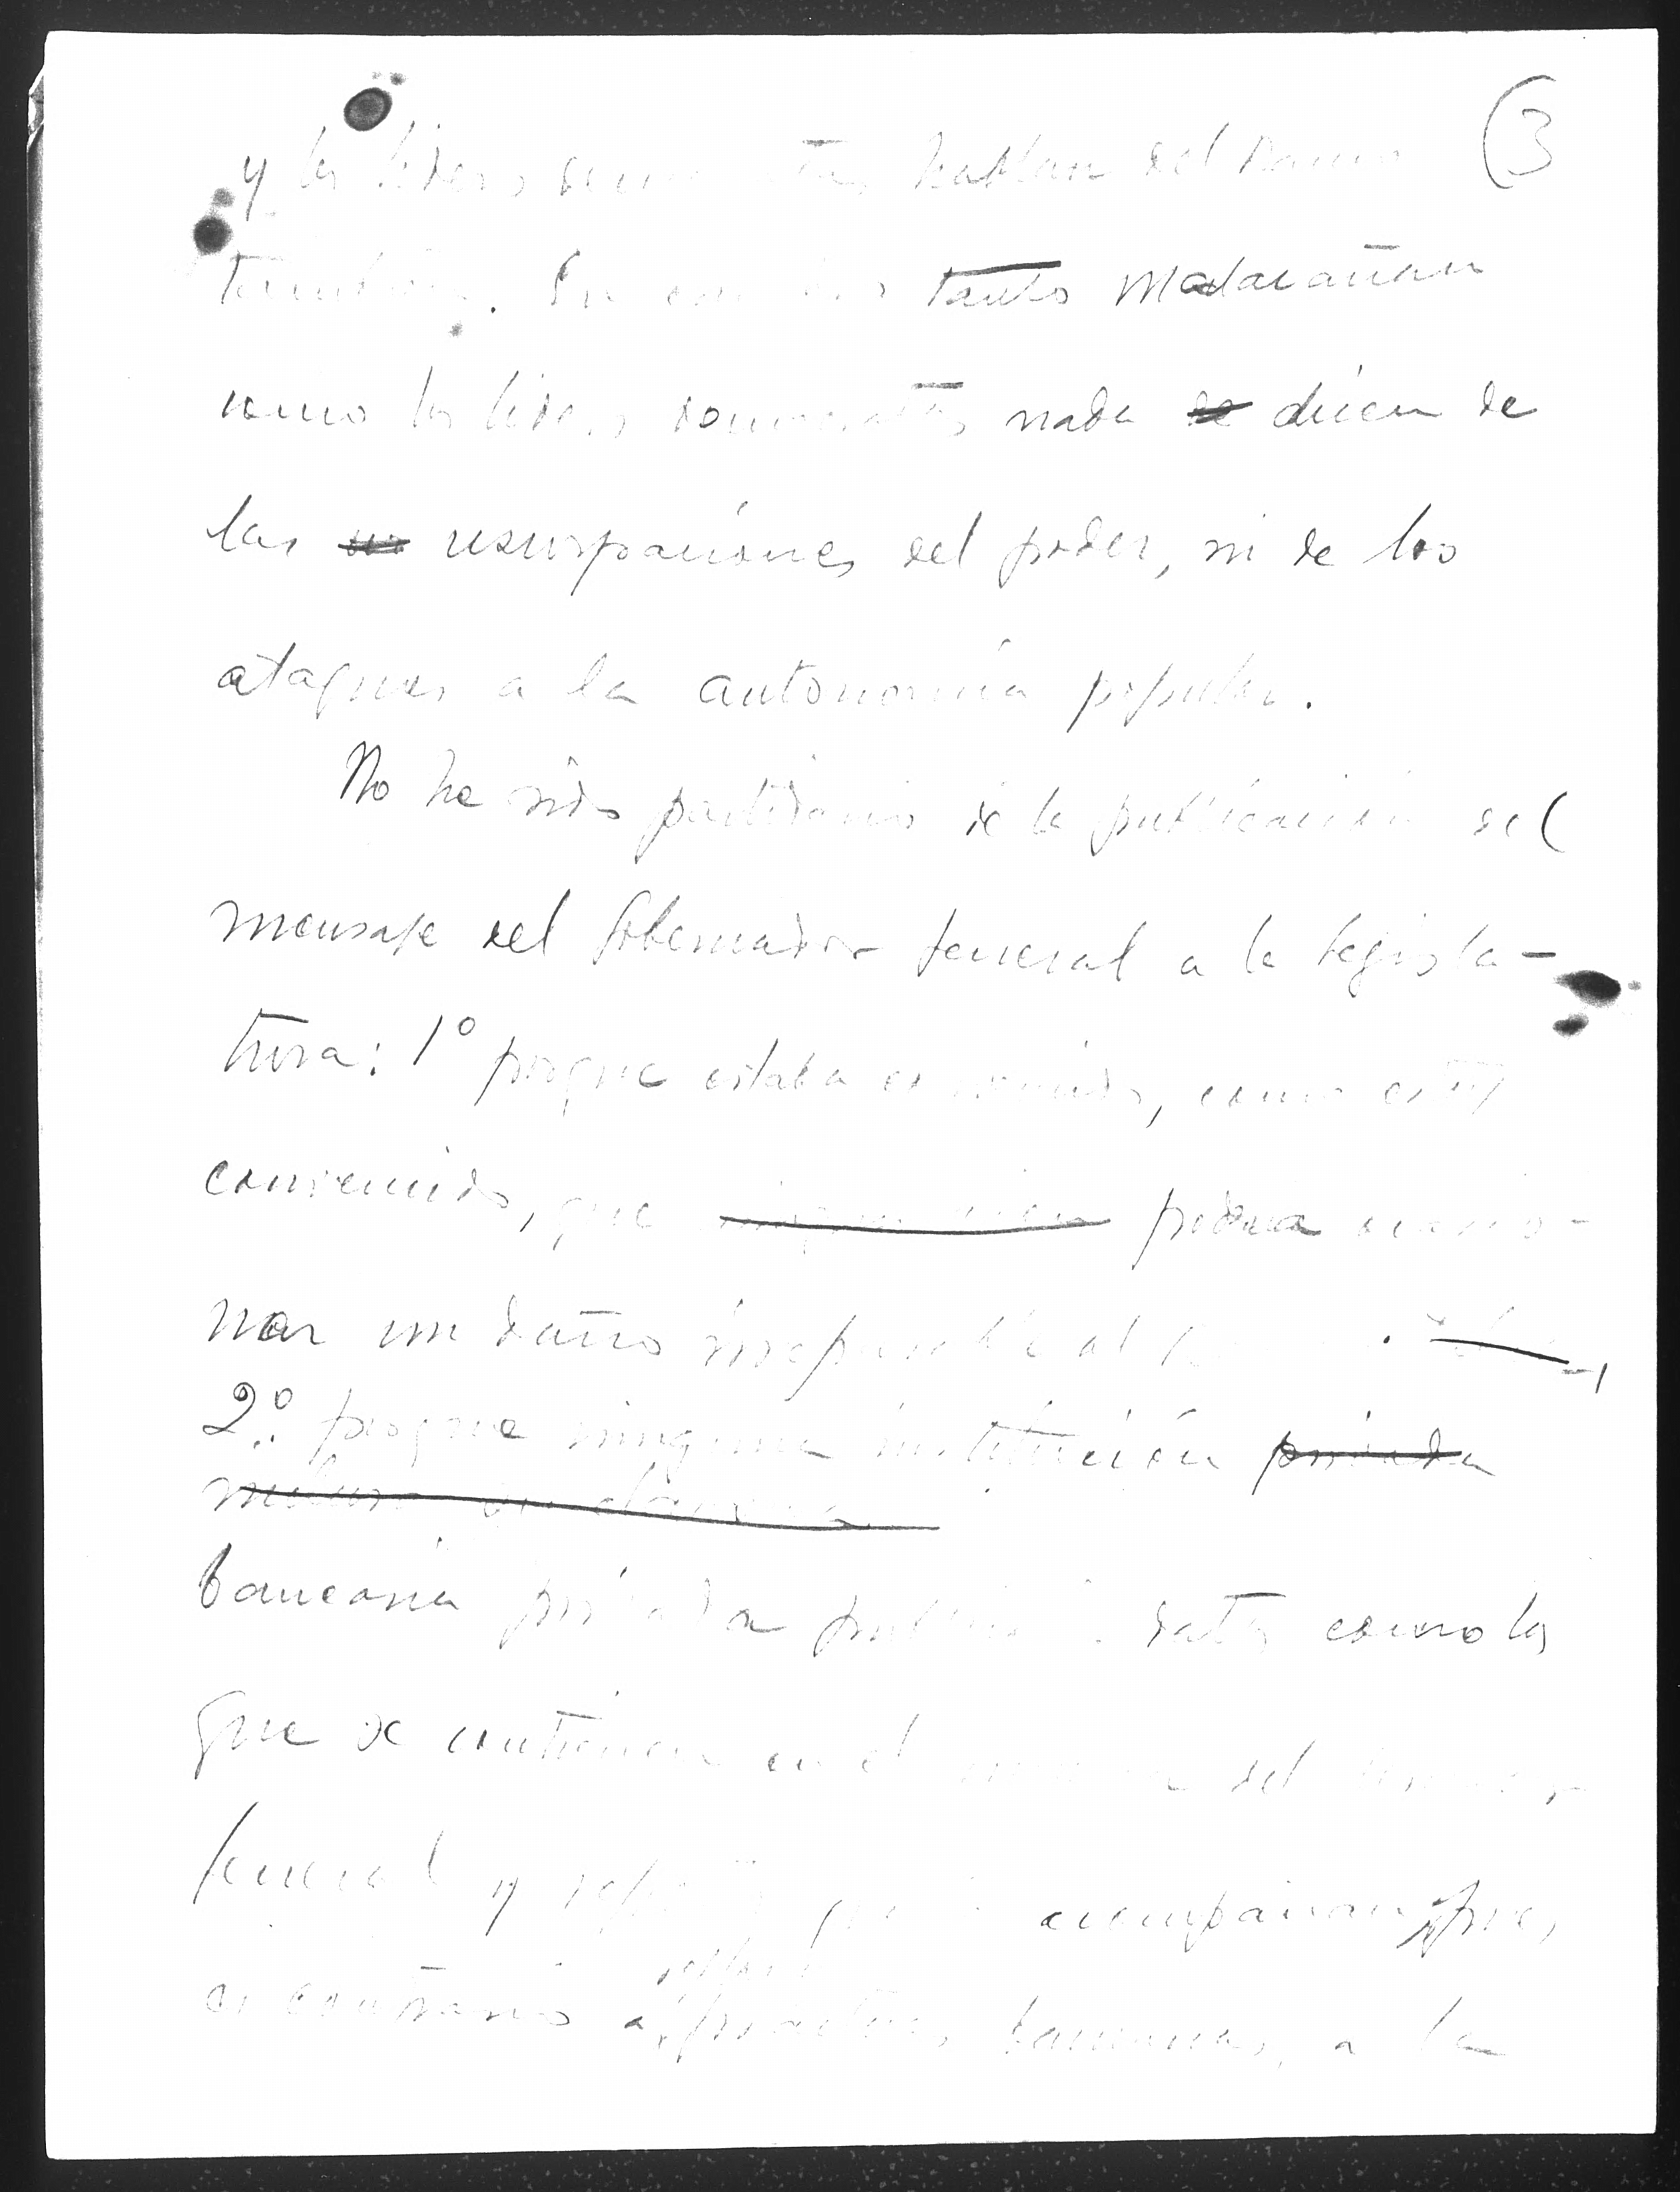 (3
y los líderes demócratas hablan del Banco
también. En cambio tanto Malacañan
como los líderes demócratas nada se dicen de
las us usurpaciones del poder, ni de los
ataques a la autonomía popular.
No he sido partidario de la publicación del
mensaje del Gobernador General a la Legisla-
tura: 1º porque estaba convencido, como estoy
convencido, que podria ocasio-
nar un daño irreparable al
2º. porque ninguna institución privada
bancaria privada publica datos como los
que se contienen en el del
General y que acompañan, pues
es contrario a prácticas bancarias, a la